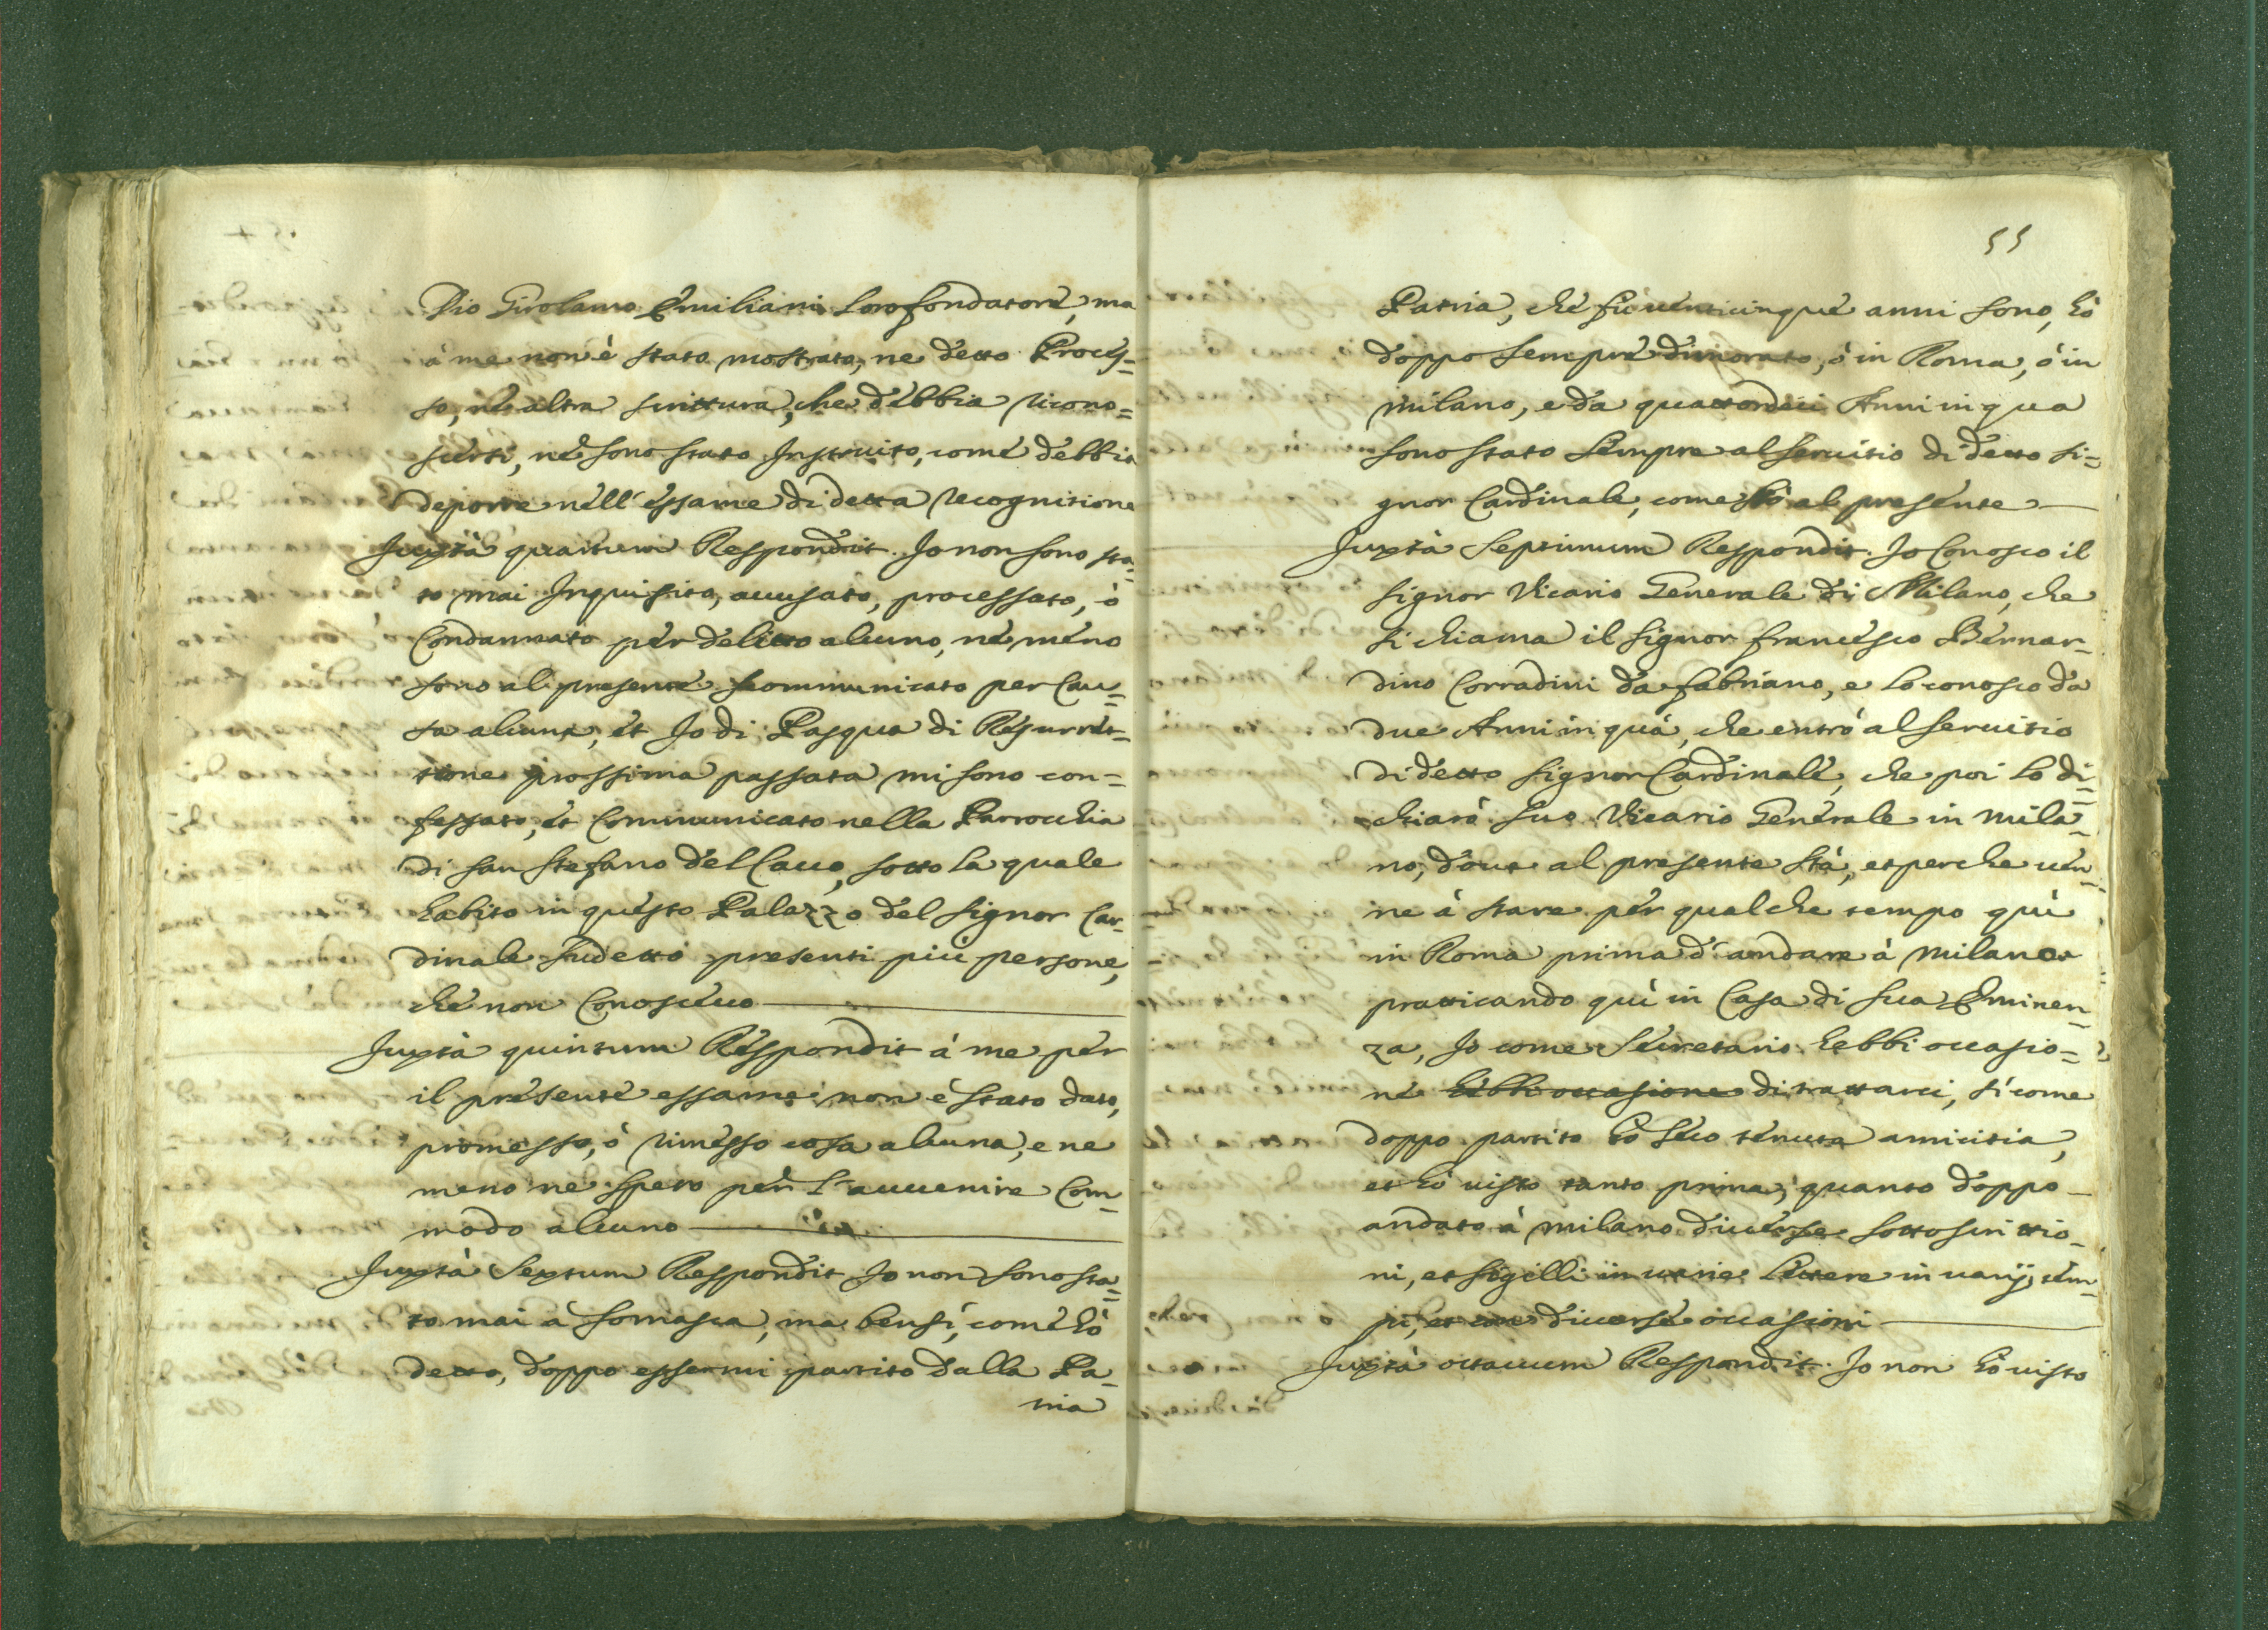 Dio Girolamo Emiliani loro fondatore, ma
à me non è stato mostrato, ne detto Proces=
so, ne altra scrittura, che debbia ricono=
scersi, ne sono stato Instruito, come debbia
deporre nell'essame di detta recognitione
Juxtà quartum Respondit. Io non sono sta=
to mai Inquisito, accusato, processato, ò
Condannato per delitto alcuno, ne meno
sono al presente scommunicato per Cau=
sa alcuna, et Io di Pasqua di Resurret=
tione prossima passata mi sono con=
fessato, et Communicato nella Parrochia
di san Stefano del Cacco, sotto la quale
habito in questo Palazzo del signor Car=
dinale sudetto presenti più persone,
che non Conoscevo
Juxtà quintum Respondit à me per
il presente essame non è stato dato,
promesso, ò rimesso cosa alcuna, e ne
meno ne spero per l'auuenire Com=
modo alcuno
Juxtà sextum Respondit Io non sono sta=
to mai à somasca, ma bensì, come hò
detto, doppo essermi partito dalla Pa=
tria
55
Patria, che fù venticinque anni sono, hò
doppo sempre dimorato, ò in Roma, ò in
milano, e da quattordici Anni in qua
sono stato sempre al seruitio di detto si=
gnor Cardinale, come stò al presente
Juxtà septimum Respondit. Io Conosco il
signor Vicario Generale di Milano, che
si chiama il signor francesco Bernar=
dino Corradini da fabriano, e lo conosco da
due Anni in quà, che entrò al seruitio
di detto signor Cardinale, che poi lo di=
chiarò suo Vicario Generale in mila=
no, doue al presente stà, et perche uen=
ne à stare per qualche tempo qui
in Roma prima d'andare à milano
pratticando quì in Casa di sua Eminen=
za, Io come Secretario hebbi occasio=
ne hebbi occasione di trattarci, sì come
doppo partito hò seco tenuta amicitia,
et hò uisto tanto prima, quanto doppo
andato à milano diuerse sottoscrittio=
ni, et sigilli in uarie lettere in uarij tem=
pi, et diuerse occasioni
Juxtà octauum Respondit. Io non hò uisto